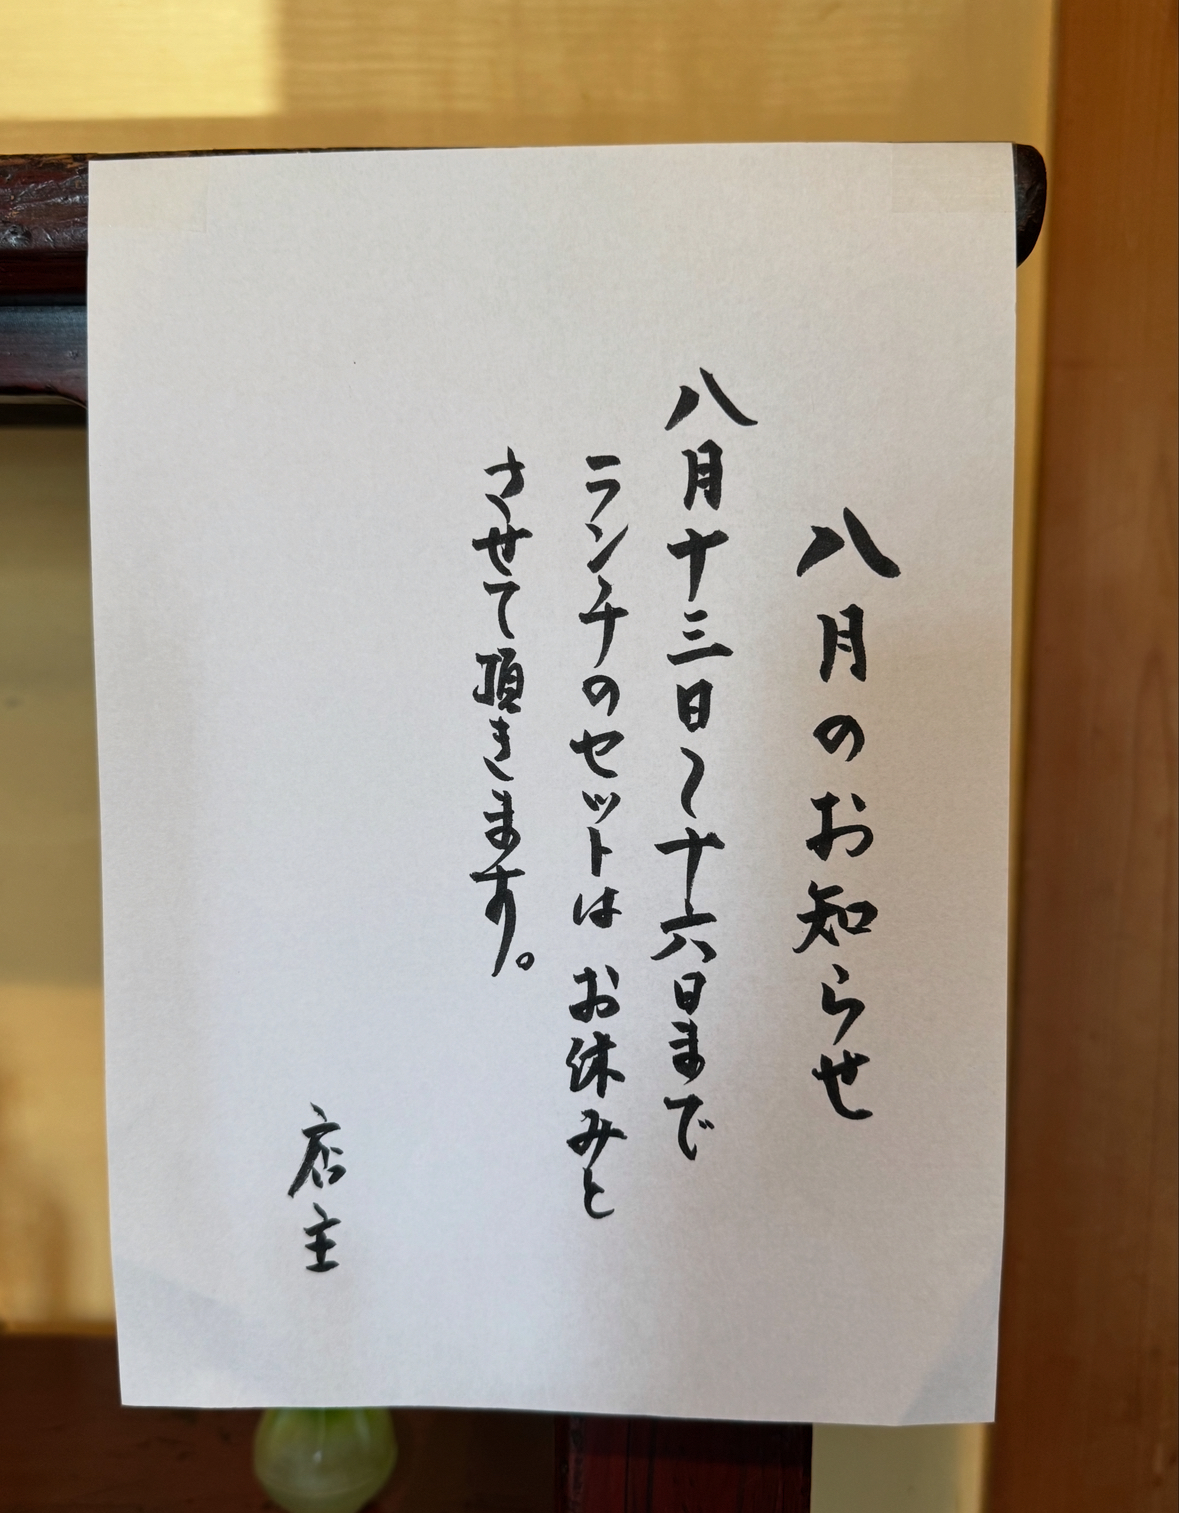 八月のお知らせ
八月十三日〜十六日まで
ランチのセットは お休みと
させて頂きます。
店主